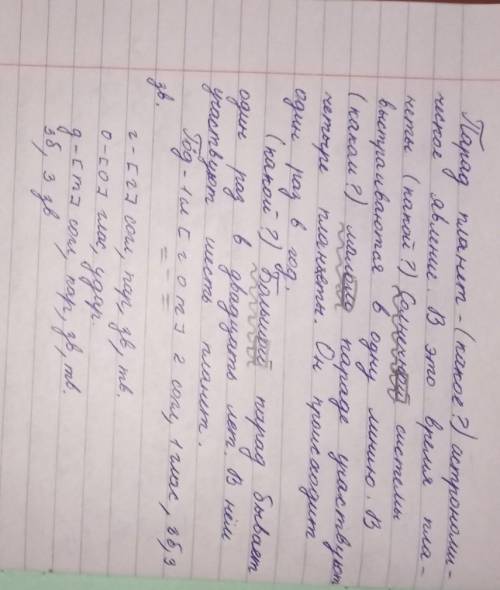 Парад планет - (какое?) астрономи-
ческое явление. В это время пла-
неты (какой?) Солнечной системы
выстраиваются в одну линию. В
(каком?) малом параде участвуют
четыре планеты. Он происходит
один раз в год.
(какой?) Большой парад бывает
один раз в двадцать лет. В нём
участвуют шесть планет.
Год - 1 сл [г о т] 2 согл, 1 глас, 3 б, 3
зв.
г - [г] согл, пар, зв, тв.
о - [о] глас, удар.
д - [т] согл, пар, зв, тв.
3 б, 3 зв